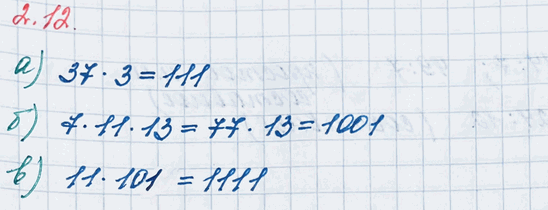 2.12.
а) 37 · 3 = 111
б) 7 · 11 · 13 = 77 · 13 = 1001
в) 11 · 101 = 1111